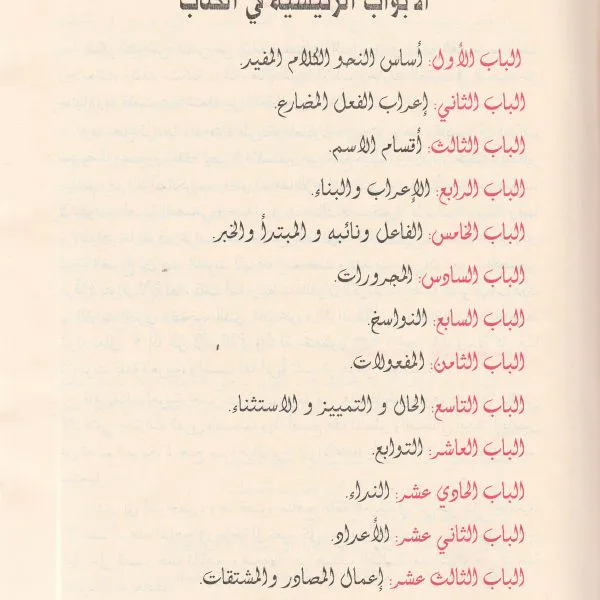 الأبواب الرئيسية في الكتاب
الباب الأول: أساس النحو الكلام المفيد.
الباب الثاني: إعراب الفعل المضارع.
الباب الثالث: أقسام الاسم.
الباب الرابع: الإعراب والبناء.
الباب الخامس: الفاعل ونائبه و المبتدأ والخبر.
الباب السادس: المجرورات.
الباب السابع: النواسخ.
الباب الثامن: المفعولات.
الباب التاسع: الحال و التمييز و الاستثناء.
الباب العاشر: التوابع.
الباب الحادي عشر: النداء.
الباب الثاني عشر: الأعداد.
الباب الثالث عشر: إعمال المصادر والمشتقات.